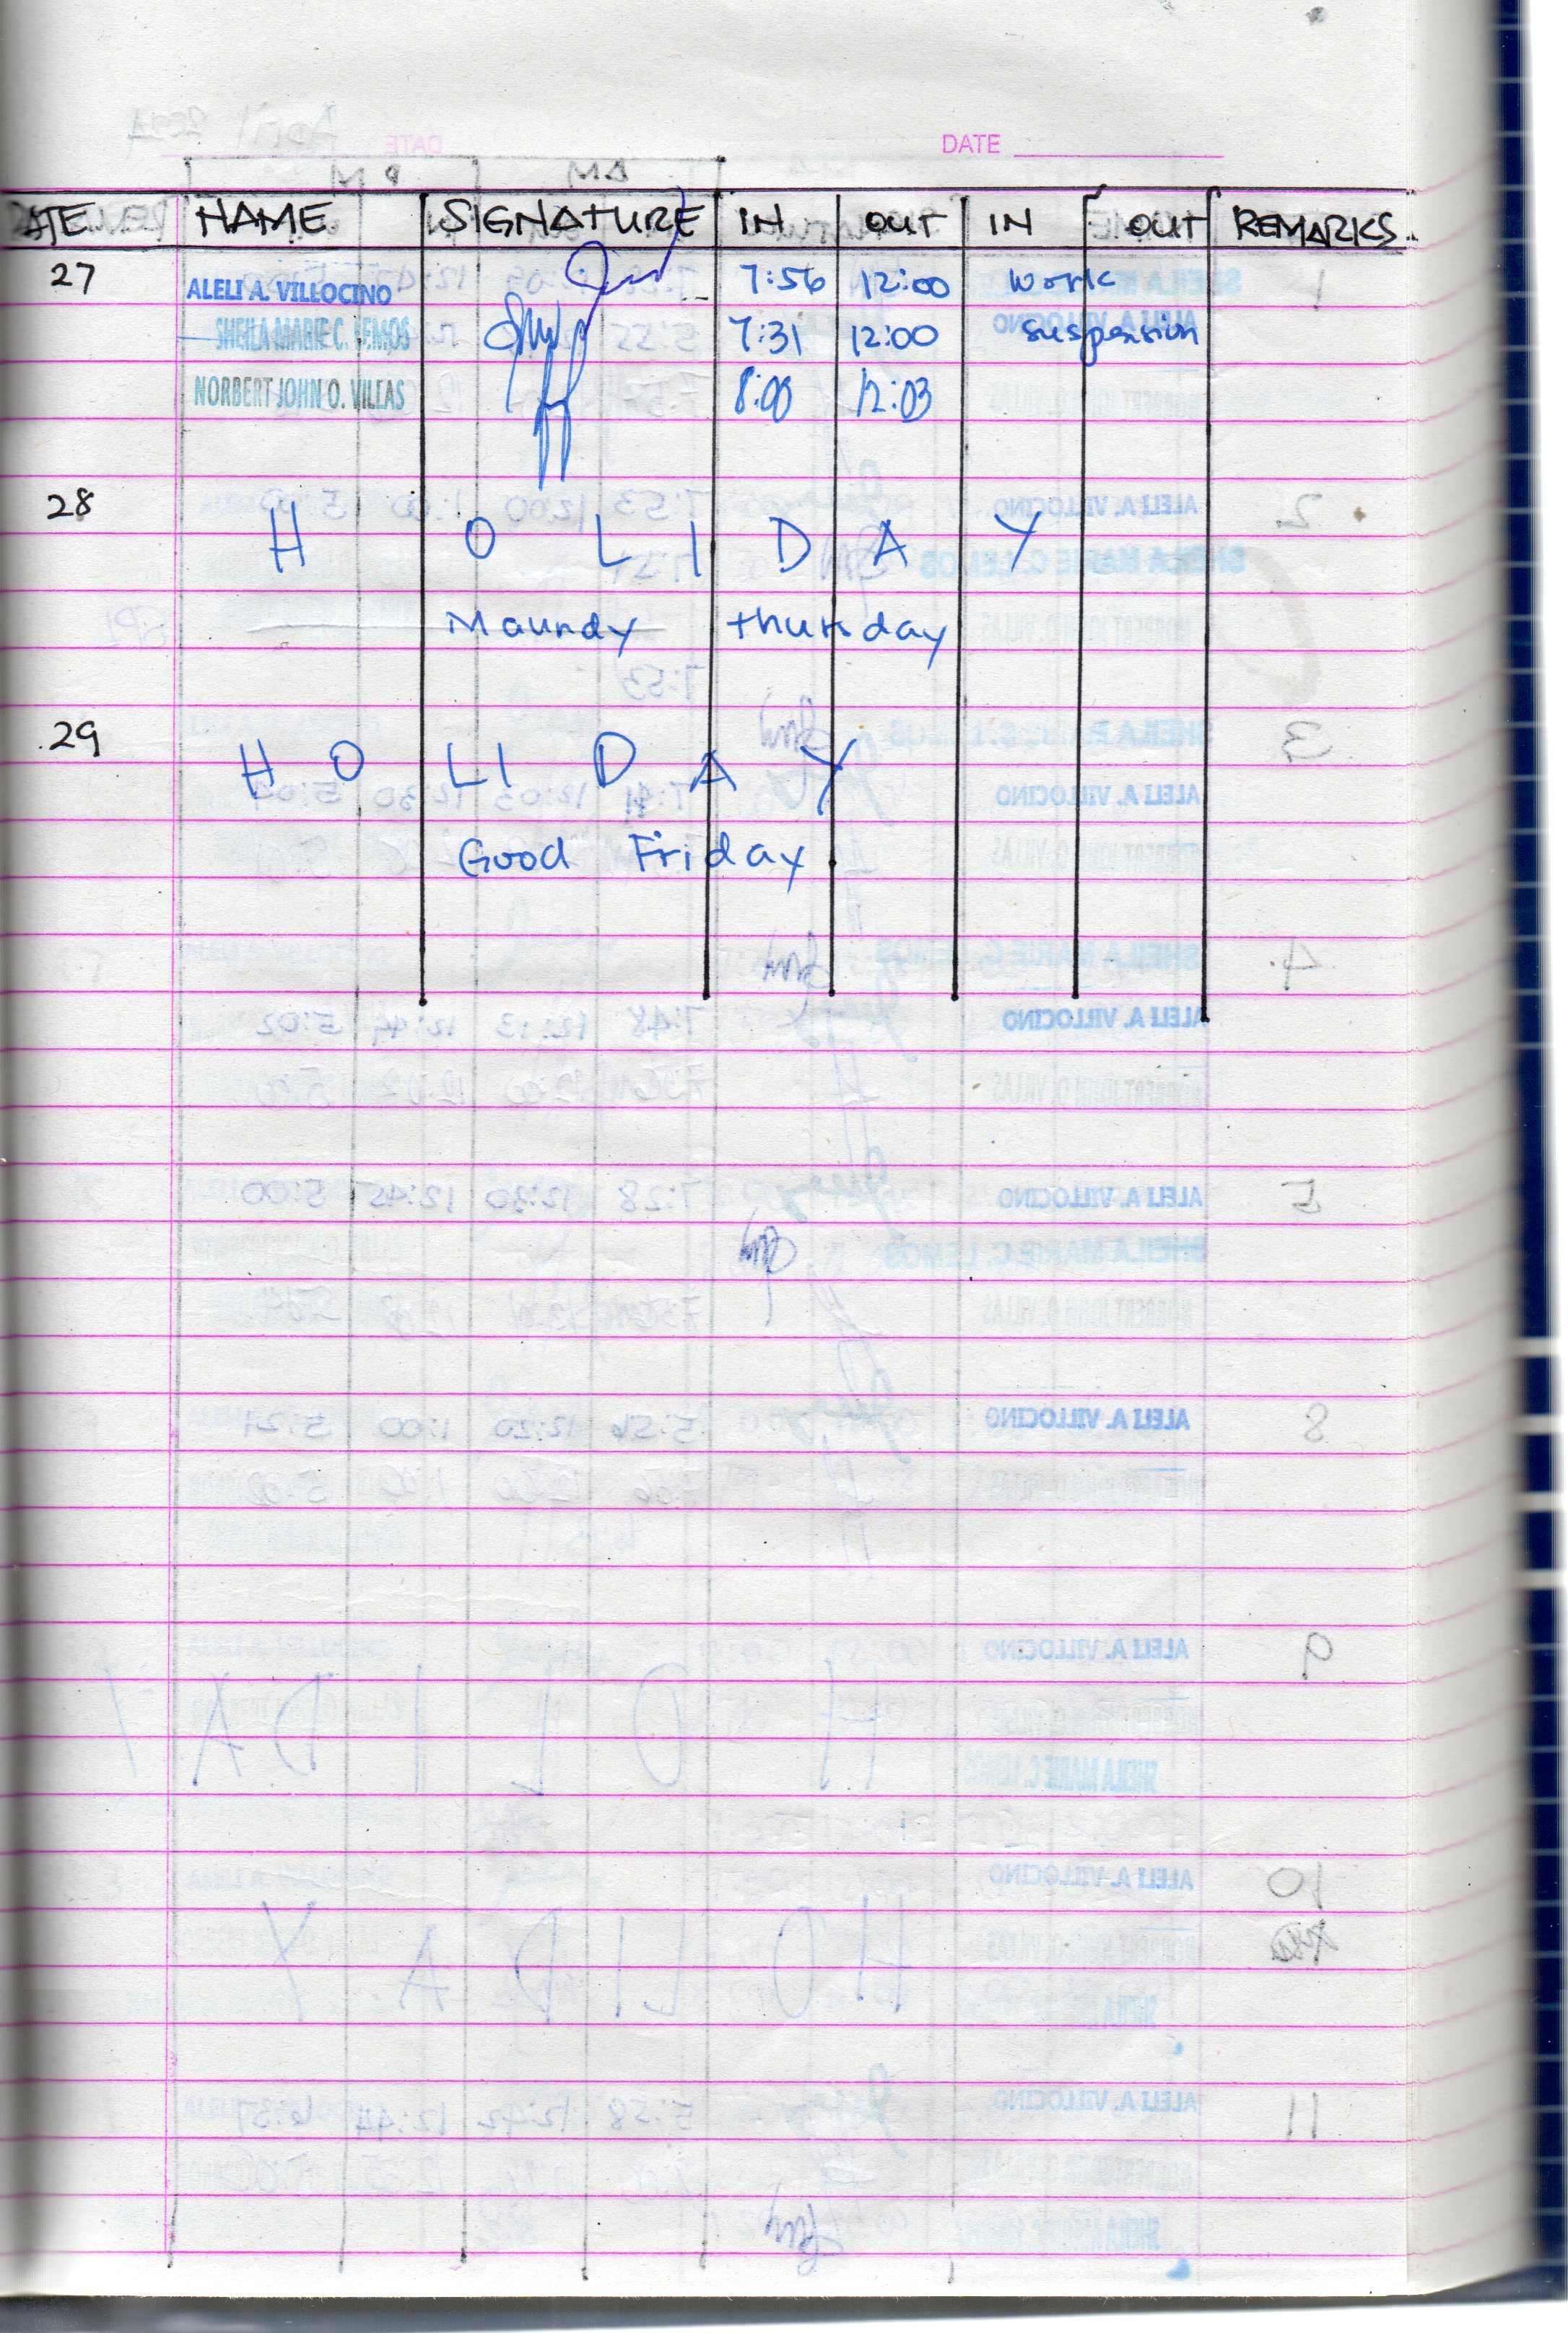 DATE
DATE NAME SIGNATURE IN OUT IN OUT REMARKS
27 ALELI A. VILLOCINO 7:56 12:00 work
SHEILA MARIE C. LEMOS 7:31 12:00 suspension
NORBERT JOHN O. VILLAS 8:00 12:03
28
H O L I D A Y
Maundy thursday
29
H O LI D A Y
Good Friday